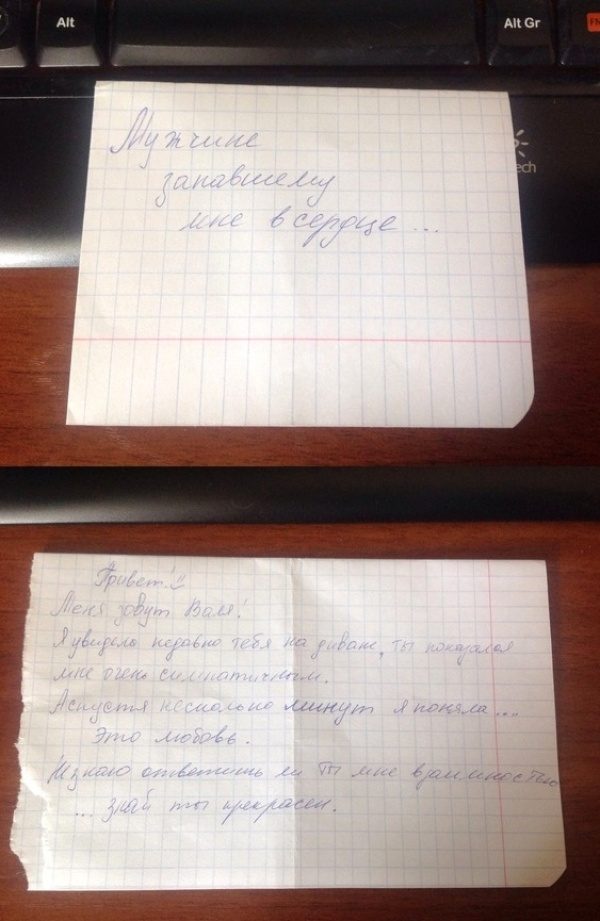 Alt
Alt Gr
FN
ech
Мужчине
запавшему
мне в сердце ...
Привет!
Меня зовут Валя!
Я увидела недавно тебя на диване, ты показался
мне очень симпатичным.
А спустя несколько минут я поняла....
Это любовь.
знаю ответишь ли ты мне взаимностью
... знай ты прекрасен.